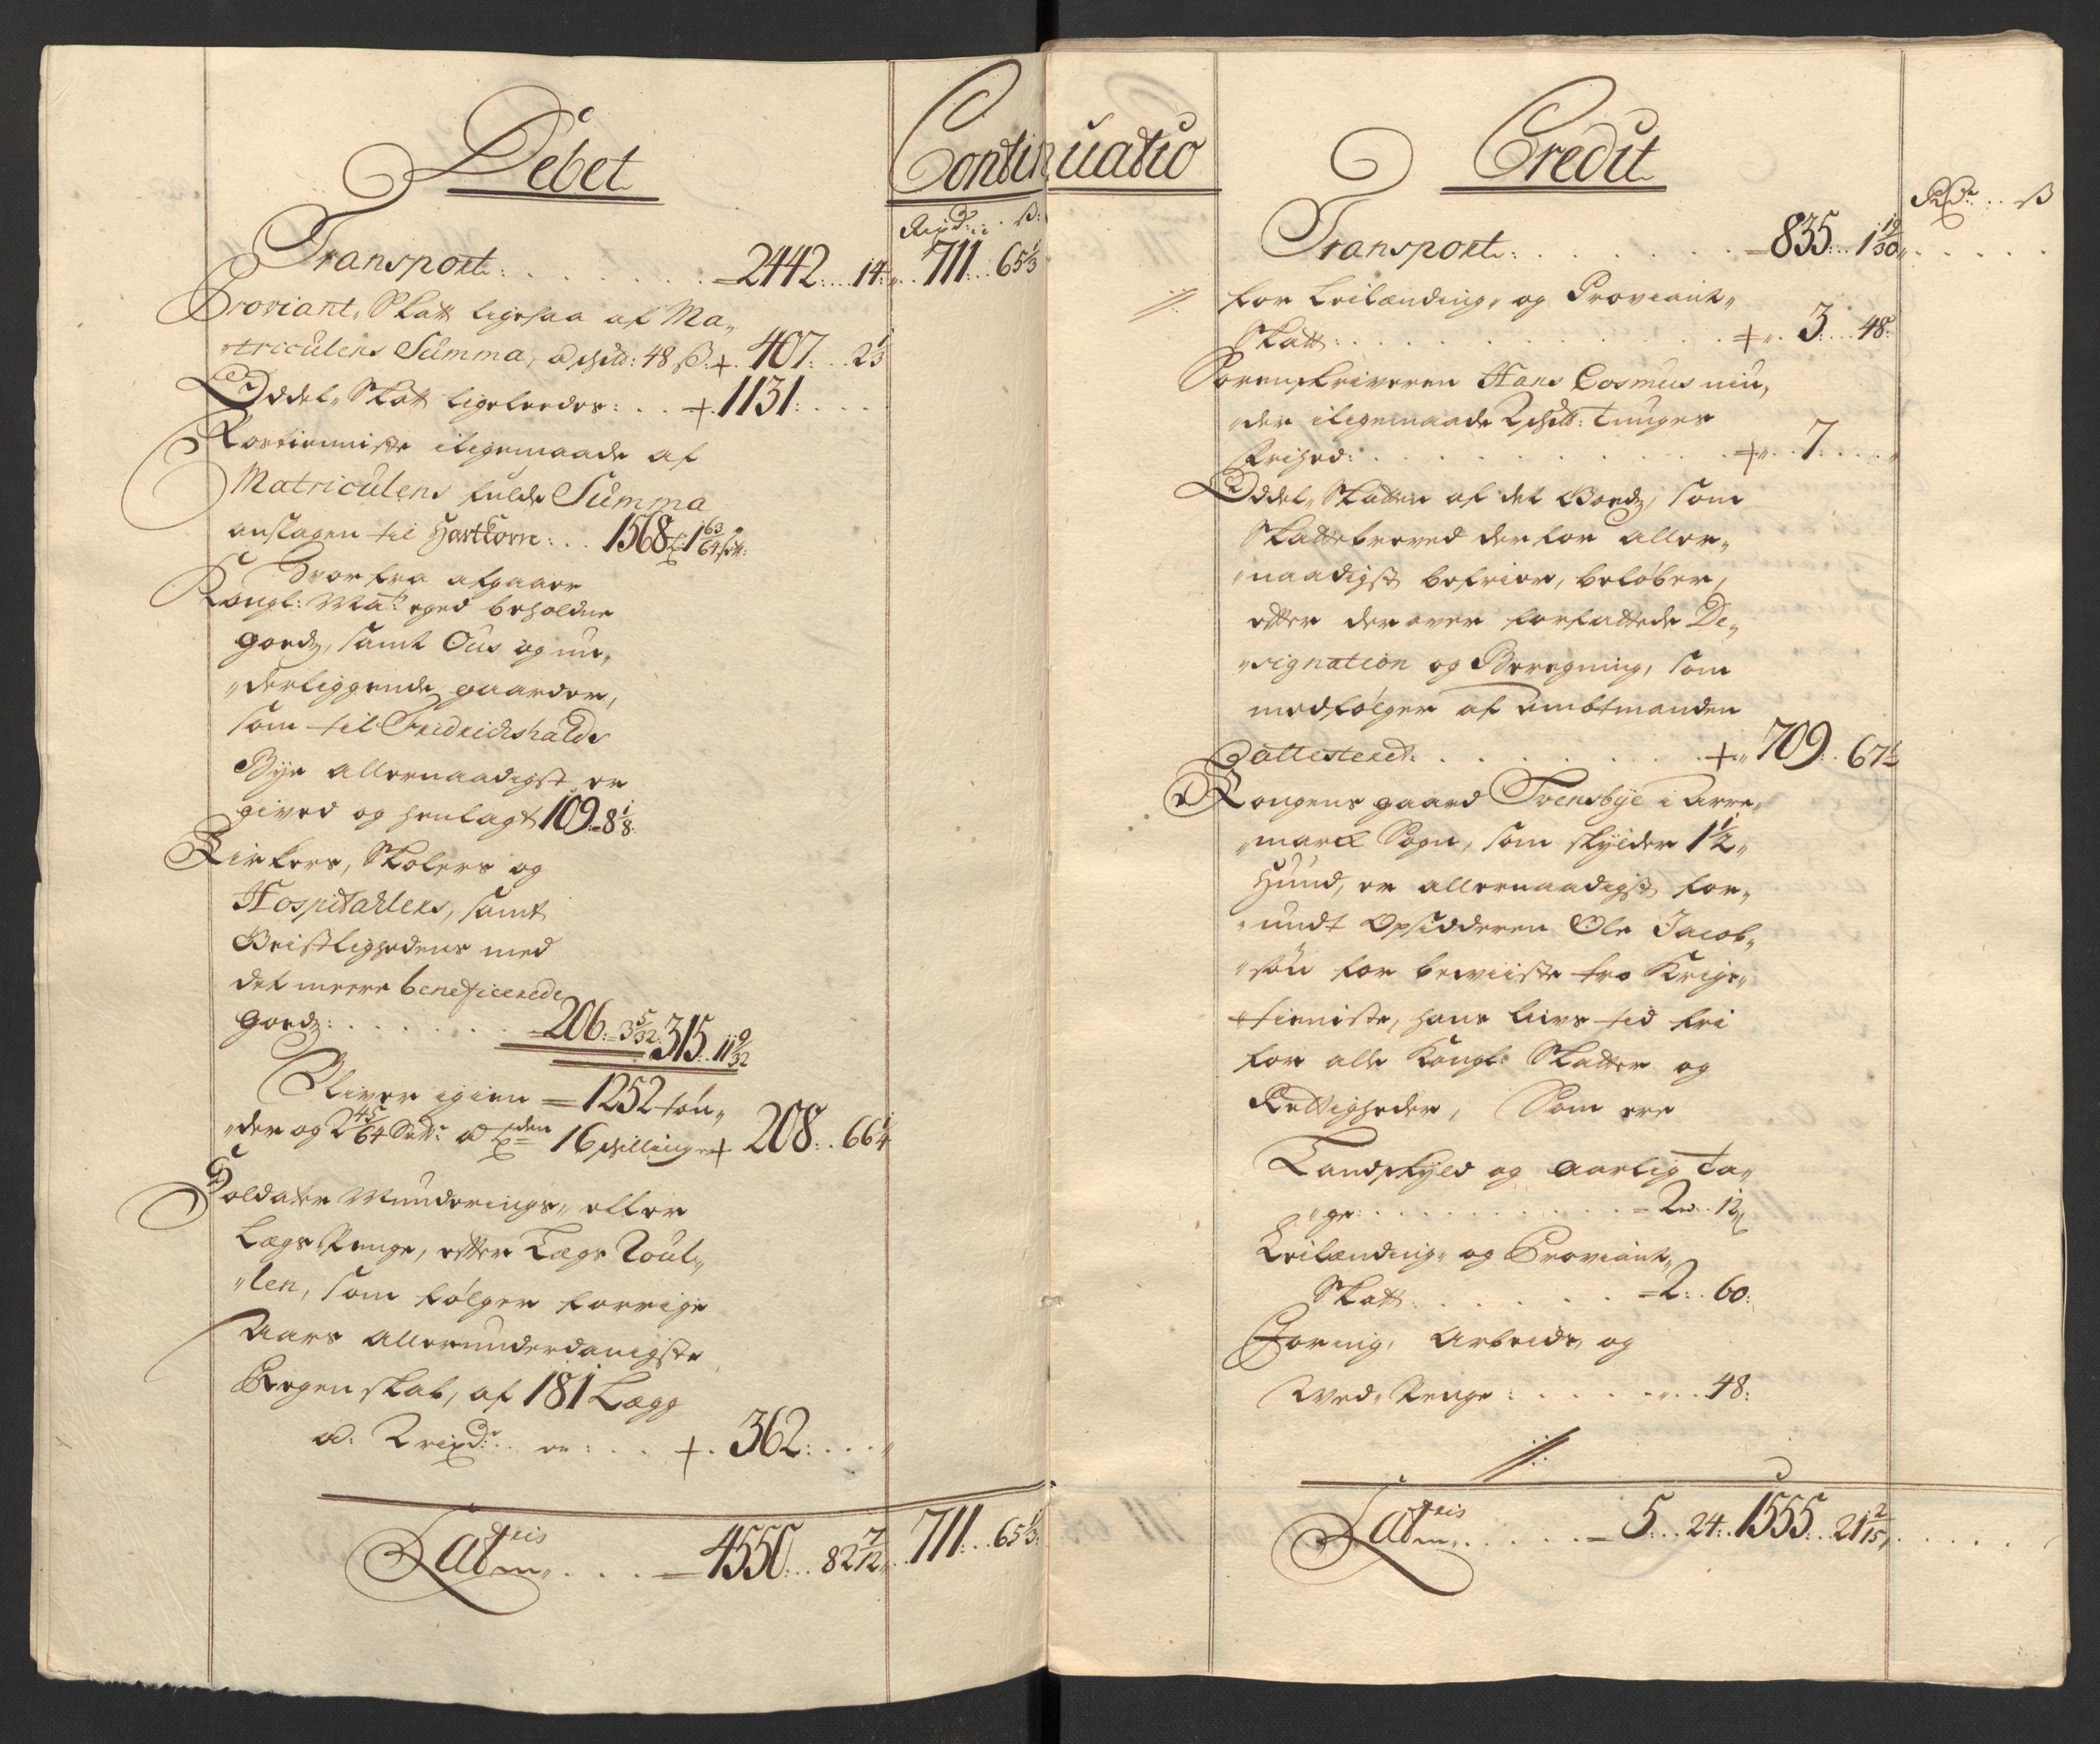 Debet
Continuatio
Rixd: ß:
Transport: =2442: 14: 711: 65 1/3
Proviant„ Skatt ligesaa af Ma„
„triculens Summa, a Schill: 48 ß: + 407: 2 1/3
Oddel„ Skatt ligeleedes: +1131:
Rostienniste iligemaade af
Matriculens fulde Summa
anslagen til Hartkorn: 1568 t: 1 63/64 sett:
Hvor fra afgaar
Kongl: May: eged beholdne
goedz, samt Ous og un„
„derliggende gaarder,
som til Fridrichshalds
Bye allernaadigst er
gived og henlagt 109 = 8 1/8:
Kirkers, Skolers og
Hospitahlers, samt
Geistlighedens med
det meere beneficerede
goedz: =206: =3 5/32: 315: 11 9/32
Bliver igien =1252 tøn„
„der og 2 45/64 Sett: a tden 16 skilling + 208: 66 1/4
Soldater Munderings„ eller
Lægs Penge, efter Lægs Roul„
„len, som følger forrige
Aars allerunderdanigste
Regenskab, af 181 Lægg
a: 2 rixdr: er: +. 362:
Lateris =4550: 82 7/12 711: 65 1/3:
Credit
Rdr: ß
Transport: =835: 1 19/30
for Leilænding„ og Proviant„
Skatt: + 3: 48:
Sorenskriveren Hans Cosmus niu„
„der iligemaade 2 Schill: tunges
Frihed: + 7:
Oddel„ Skatten af det Goedz, som
Skattebreved derfor aller„
„naadigst befrier, beløber,
efter derover forfattede De„
„signation og Beregning, som
medfølger af Ambtmanden
attestered: + 709: 67 1/2
Kongens gaard Tvensbye i Arre„
„marck Sogn, som skylder 1 1/2
Hund, er allernaadigst for„
„undt Opsidderen Ole Jacob„
„søn for beviiste tro Krigs„
tienniste, hans Livs tid fri
for alle Kongl: Skatter og
Rettigheder, Som ere
Landskyld og aarlig ta„
„ge: =2: 12
Leilænding„ og Proviant„
Skatt: =2: 60:
Foring, Arbeids, og
Wed„ Penge: 48:
Lateris =5: 24: 1555: 21 2/15